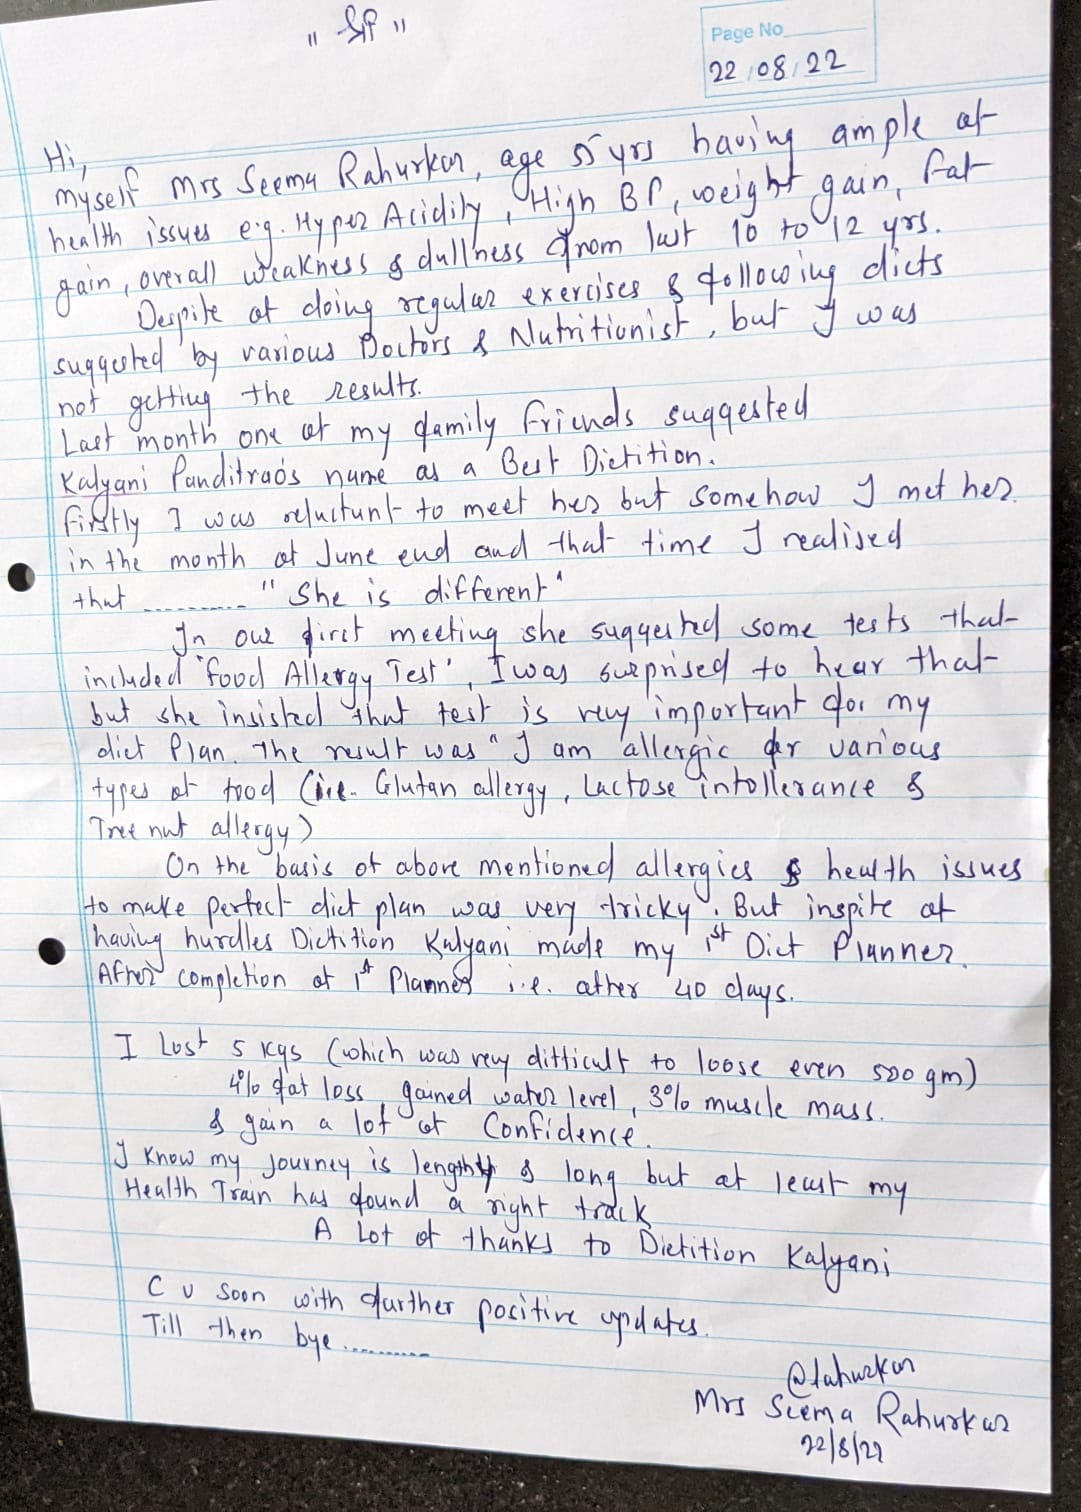 " श्री "
Page No
22/08/22
Hi,
myself Mrs Seema Rahurkar, age 55 yrs having ample of
health issues e.g. Hyper Acidity, High BP, weight gain, fat
gain, overall weakness & dullness from last 10 to 12 yrs.
Despite of doing regular exercises & following diets
suggested by various Doctors & Nutritionist, but I was
not getting the results.
Last month one of my family friends suggested
Kalyani Panditrao's name as a Best Dietition.
Firstly I was reluctunt to meet her but somehow I met her
in the month of June end and that time I realised
that .......... "She is different"
In our first meeting she suggested some tests that
included 'Food Allergy Test', I was surprised to hear that
but she insisted that test is very important for my
diet Plan. The result was " I am allergic for various
types of food (i.e. Glutan allergy, Lactose intollerance &
Tree nut allergy)
On the basis of above mentioned allergies & health issues
to make perfect diet plan was very tricky. But inspite of
having hurdles Dietition Kalyani made my 1st Diet Planner.
After completion of 1st Planner i.e. after 40 days.
I Lost 5 kgs (which was very difficult to loose even 500 gm)
4% fat loss, gained water level, 3% muscle mass.
& gain a lot of Confidence.
I Know my journey is lengthy & long but at least my
Health Train has found a right track
A Lot of thanks to Dietition Kalyani
C U Soon with further positive updates.
Till then bye ..........
Mrs Seema Rahurkar
22/8/22